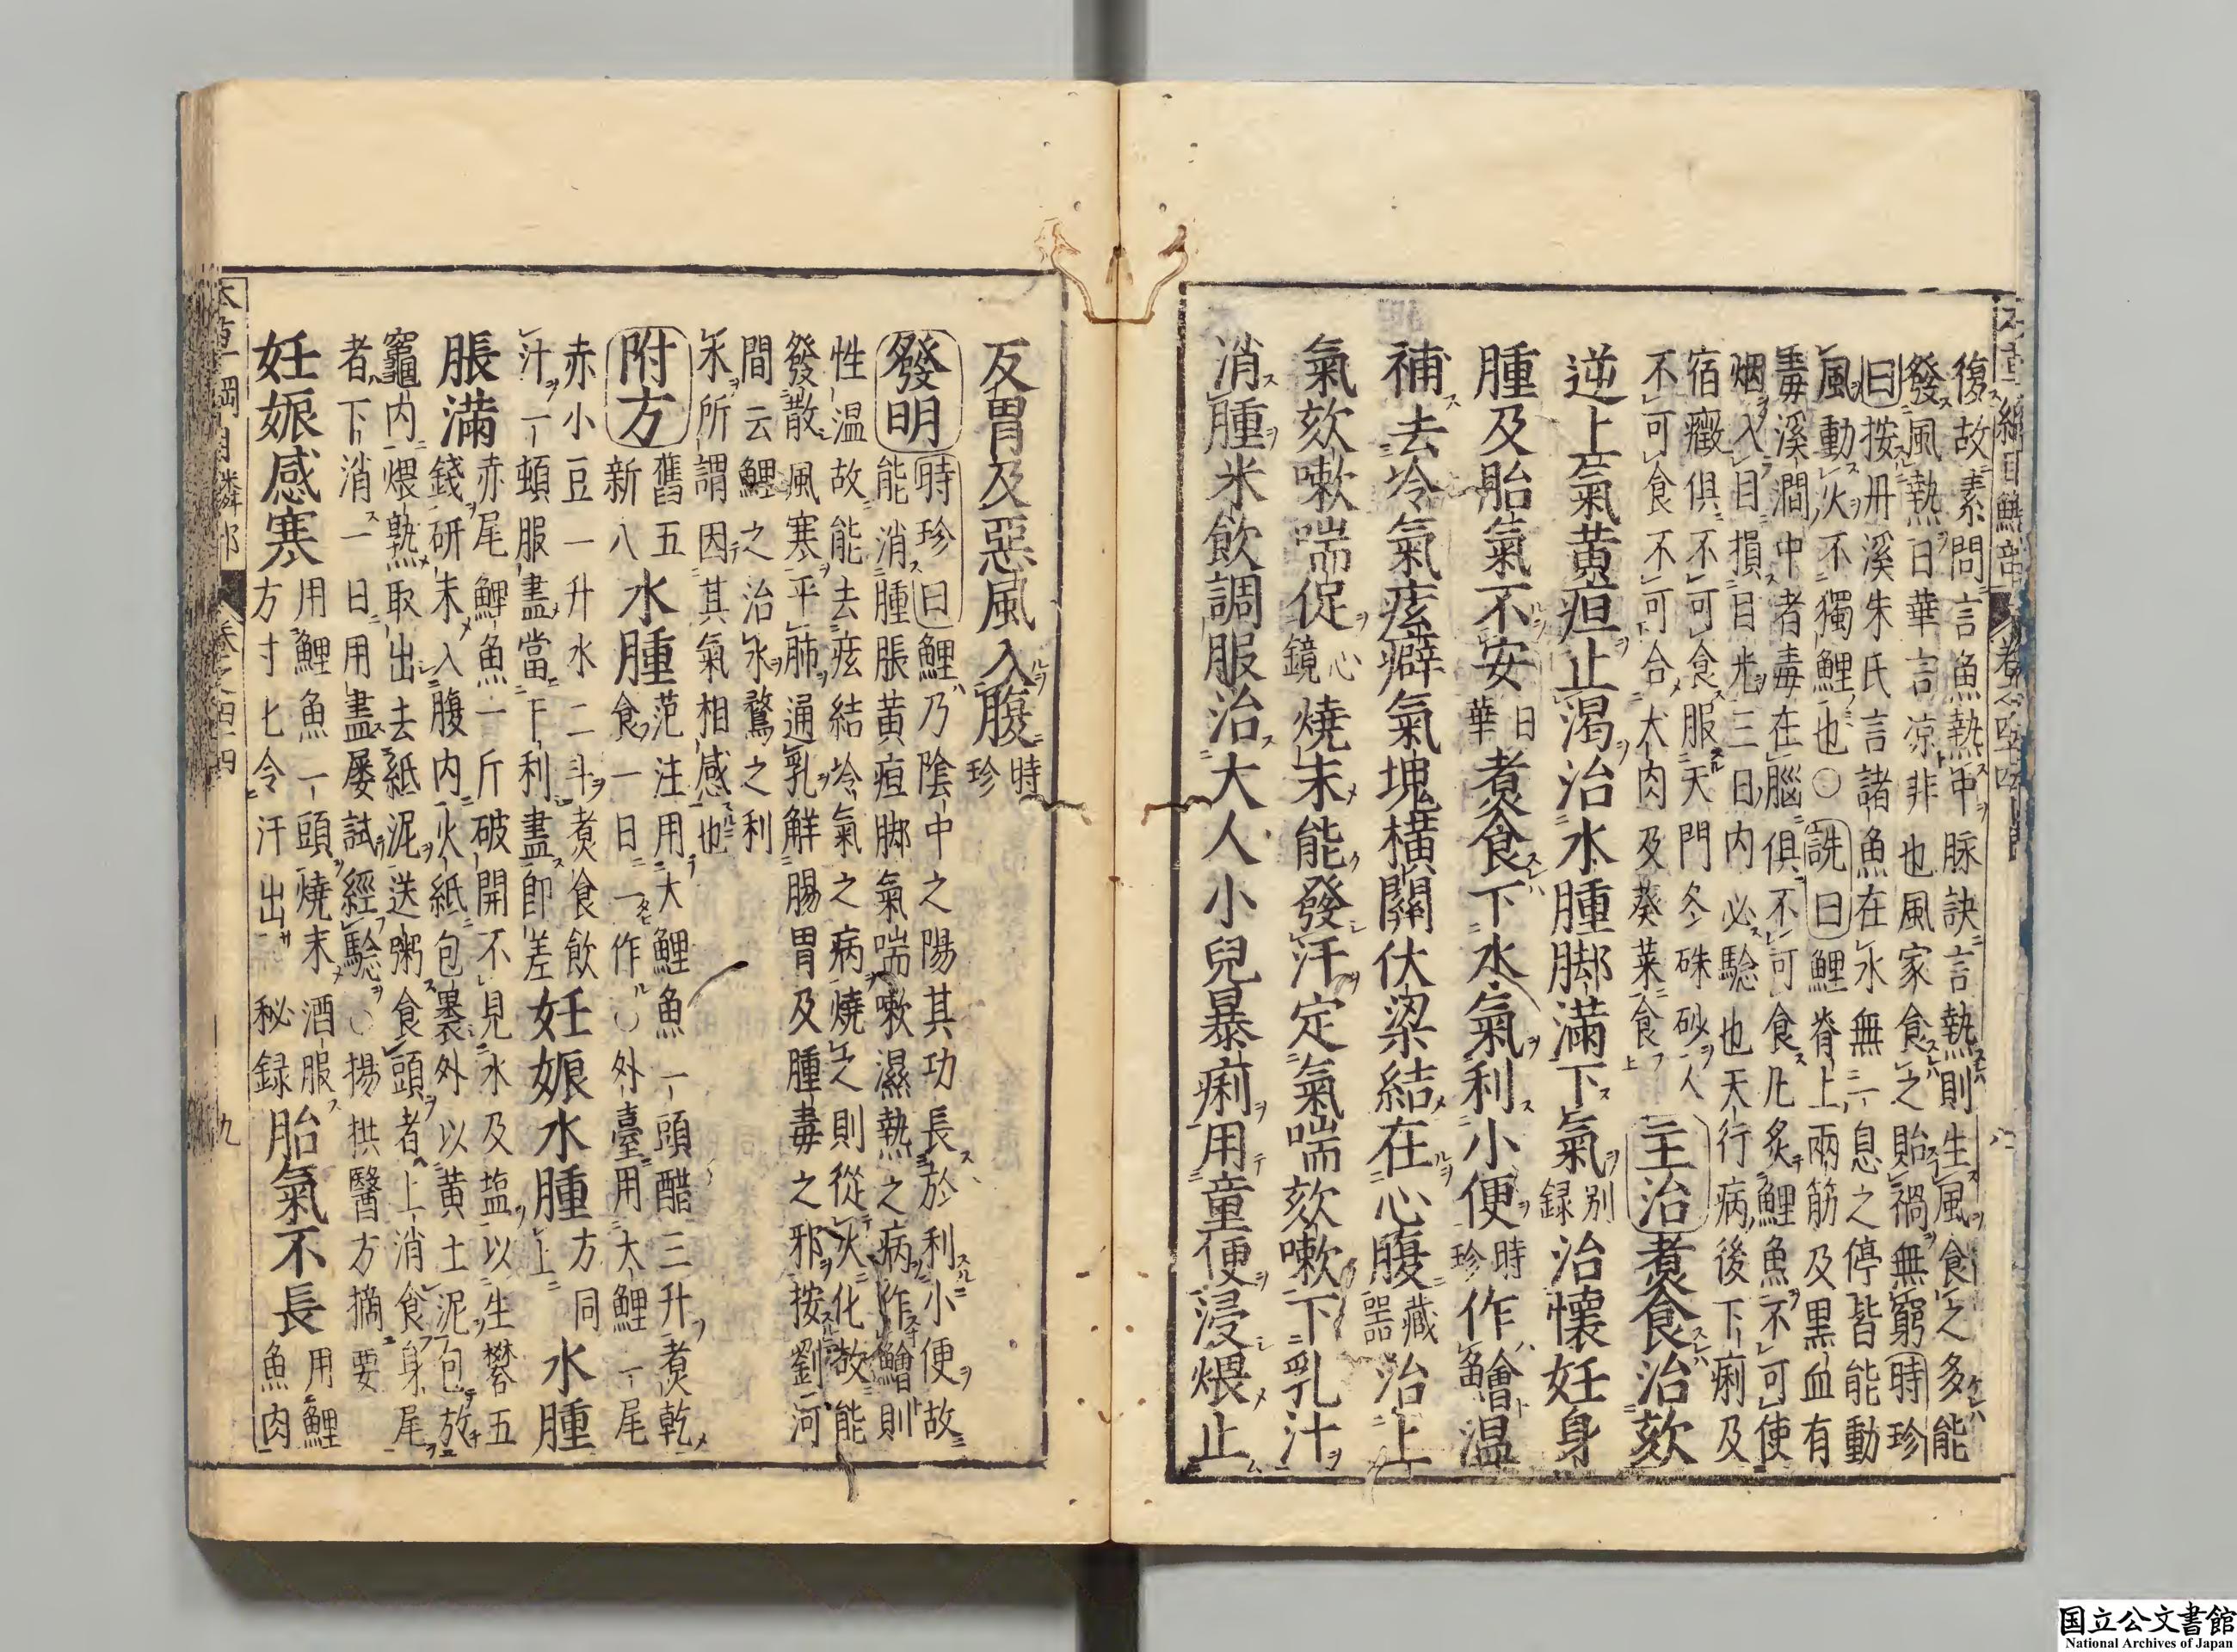 復故素問言魚熱中脉訣言熱則生風食之多能
發風熱日華言凉非也風家食之貽禍無窮時珍
曰按丹溪朱氏言諸魚在水無一息之停皆能動
風動火不獨鯉也○詵曰鯉脊上兩筋及黒血有
毒溪澗中者毒在腦俱不可食凡炙鯉魚不可使
烟入目損目光三日内必驗也天行病後下痢及
宿癥俱不可食服天門冬硃砂人
不可食不可合犬肉及葵菜食
主治煮食治欬
逆上氣黄疸止渇治水腫脚滿下氣
別録
治懷妊身
腫及胎氣不安
日華
煮食下水氣利小便
時珍
作鱠温
補去冷氣痃癖氣塊横關伏梁結在心腹
藏器
治上
氣欬嗽喘促
心鏡
燒末能發汗定氣喘欬嗽下乳汁
消腫米飲調服治大人小兒暴痢用童便浸煨止
反胃及惡風入腹
時珍
發明
時珍曰鯉乃陰中之陽其功長於利小便故
能消腫脹黄疸脚氣喘嗽濕熱之病作鱠則
性温故能去痃結冷氣之病燒之則從火化故能
發散風寒平肺通乳解腸胃及腫毒之邪按劉河
間云鯉之治水鶩之利
水所謂因其氣相感也
附方
舊五
新八
水腫
范汪用大鯉魚一頭醋三升煮乾
食一日一作○外臺用大鯉一尾
赤小豆一升水二斗煮食飲
汁一頓服盡當下利盡即差
妊娠水腫
方同
上
水腫
脹滿
赤尾鯉魚一斤破開不見水及塩以生礬五
錢研末入腹内火紙包裹外以黄土泥包放
竈内煨熟取出去紙泥送粥食頭者上消食身尾
者下消一日用盡屡試經驗○揚拱醫方摘要
妊娠感寒
用鯉魚一頭燒末酒服
方寸匕令汗出秘録
胎氣不長
用鯉
魚肉
本草綱目鱗部
卷之四十四
九
国立公文書館
National Archives of Japan